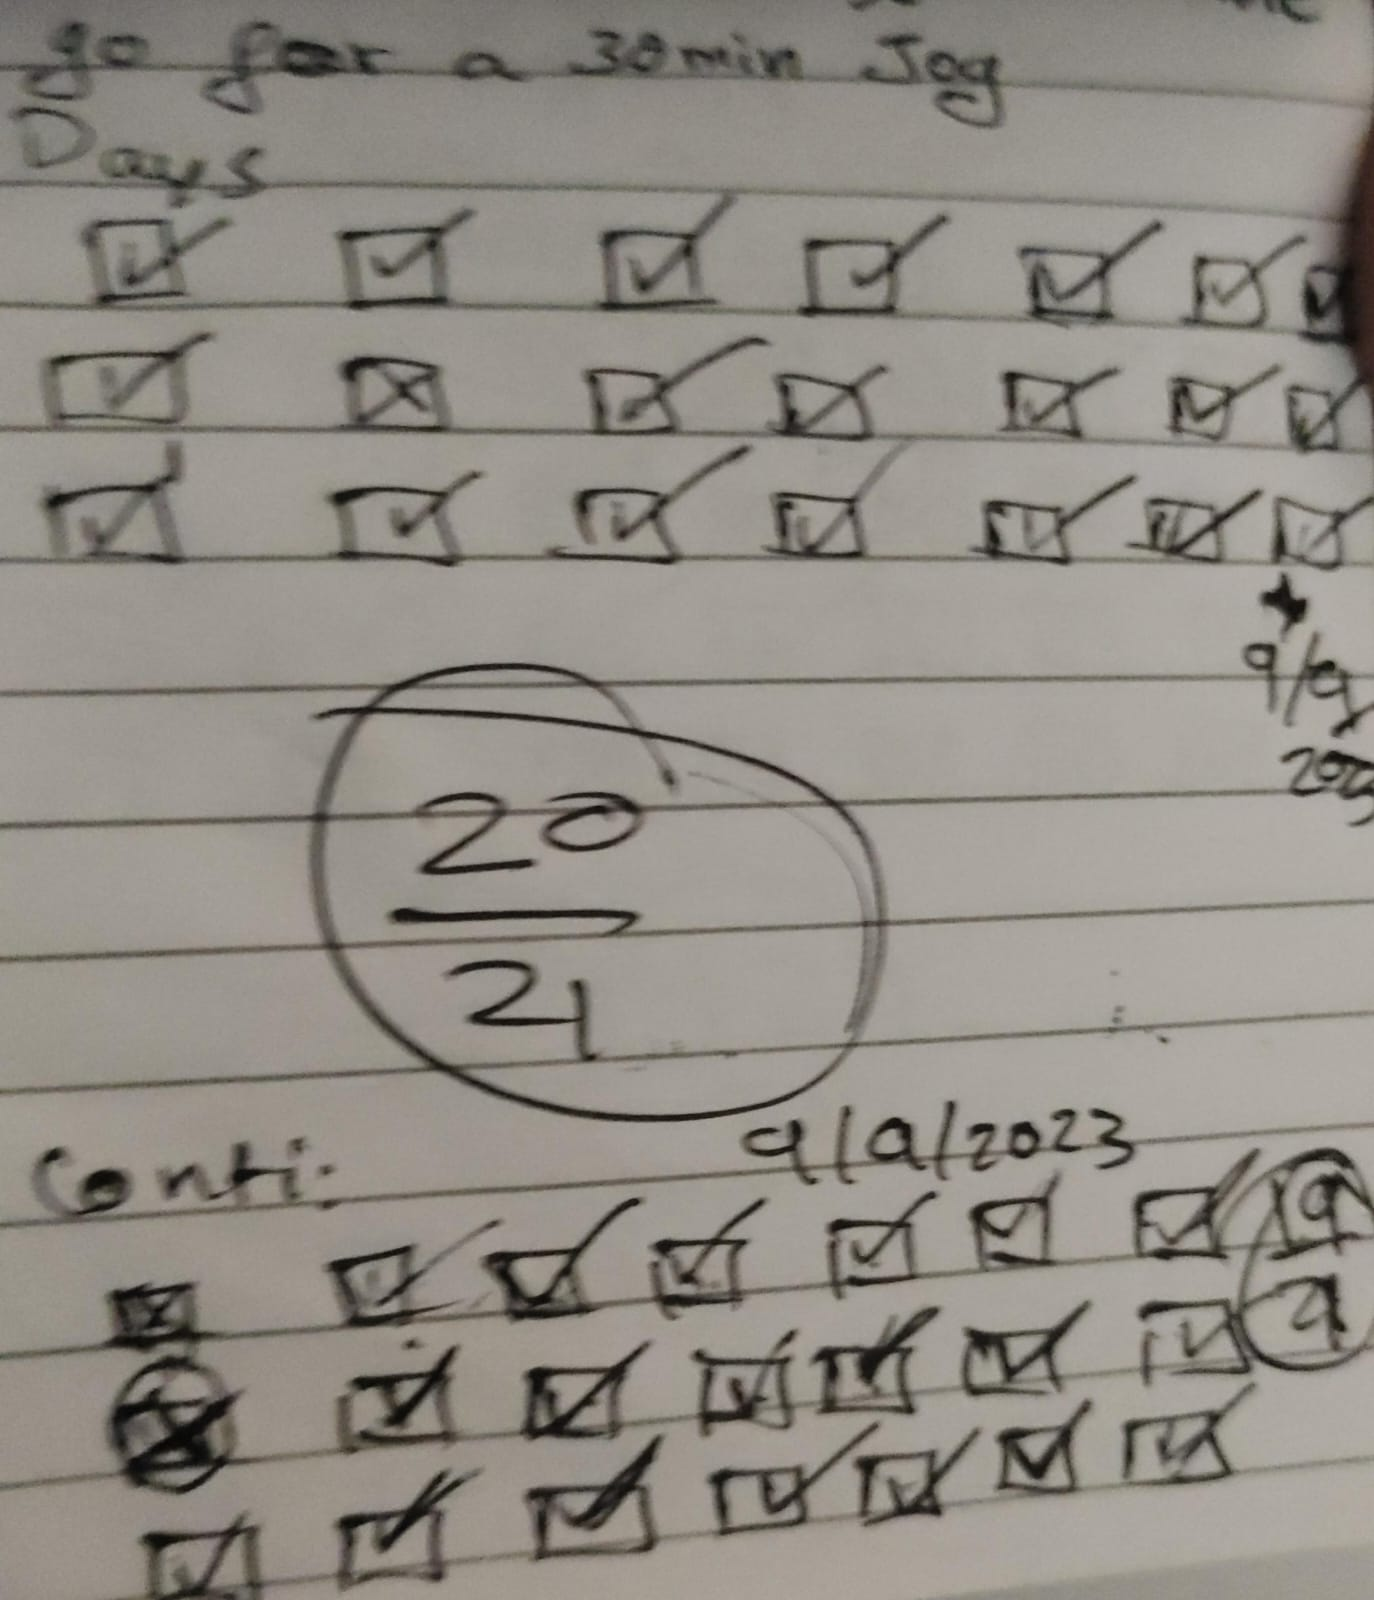 go for a 30min Jog
Days
9/9
20
21
Conti:
9/9/2023
19
21